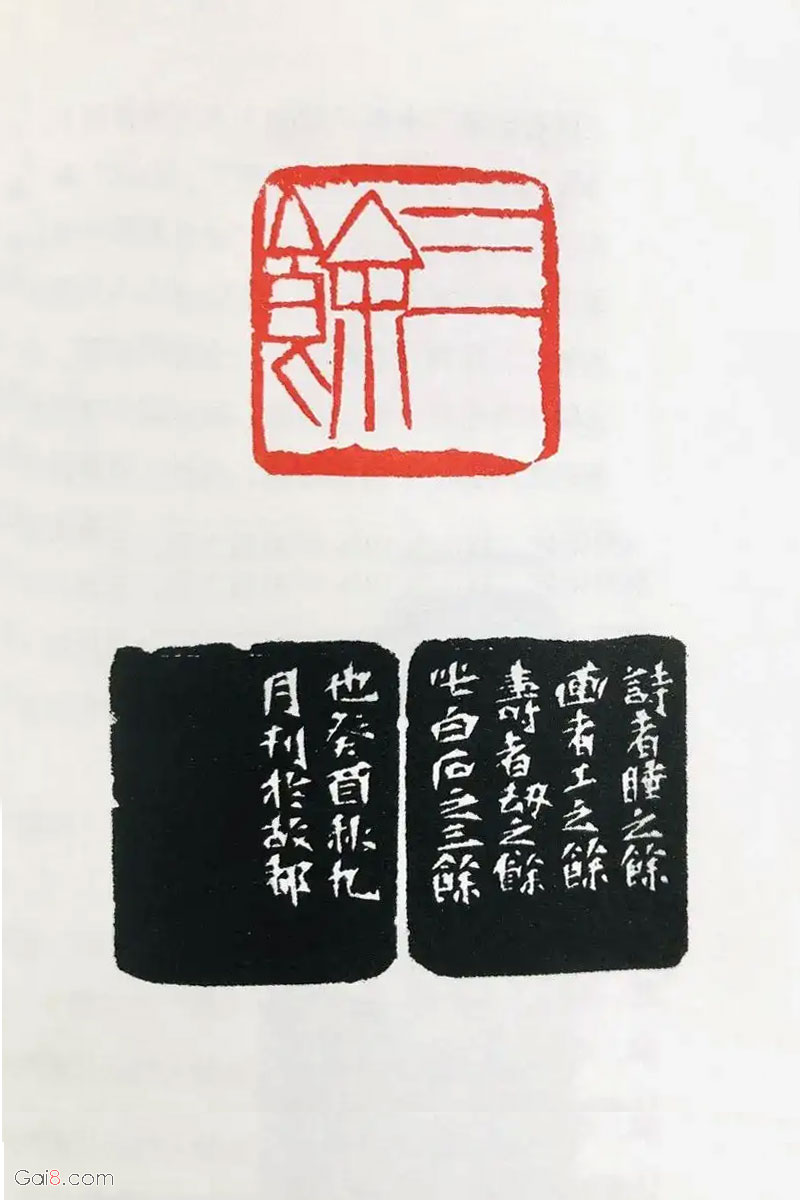 三餘
詩者睡之餘
畫者工之餘
壽者劫之餘
此白石之三餘
也癸酉秋九
月刊於故都
Gai8.com